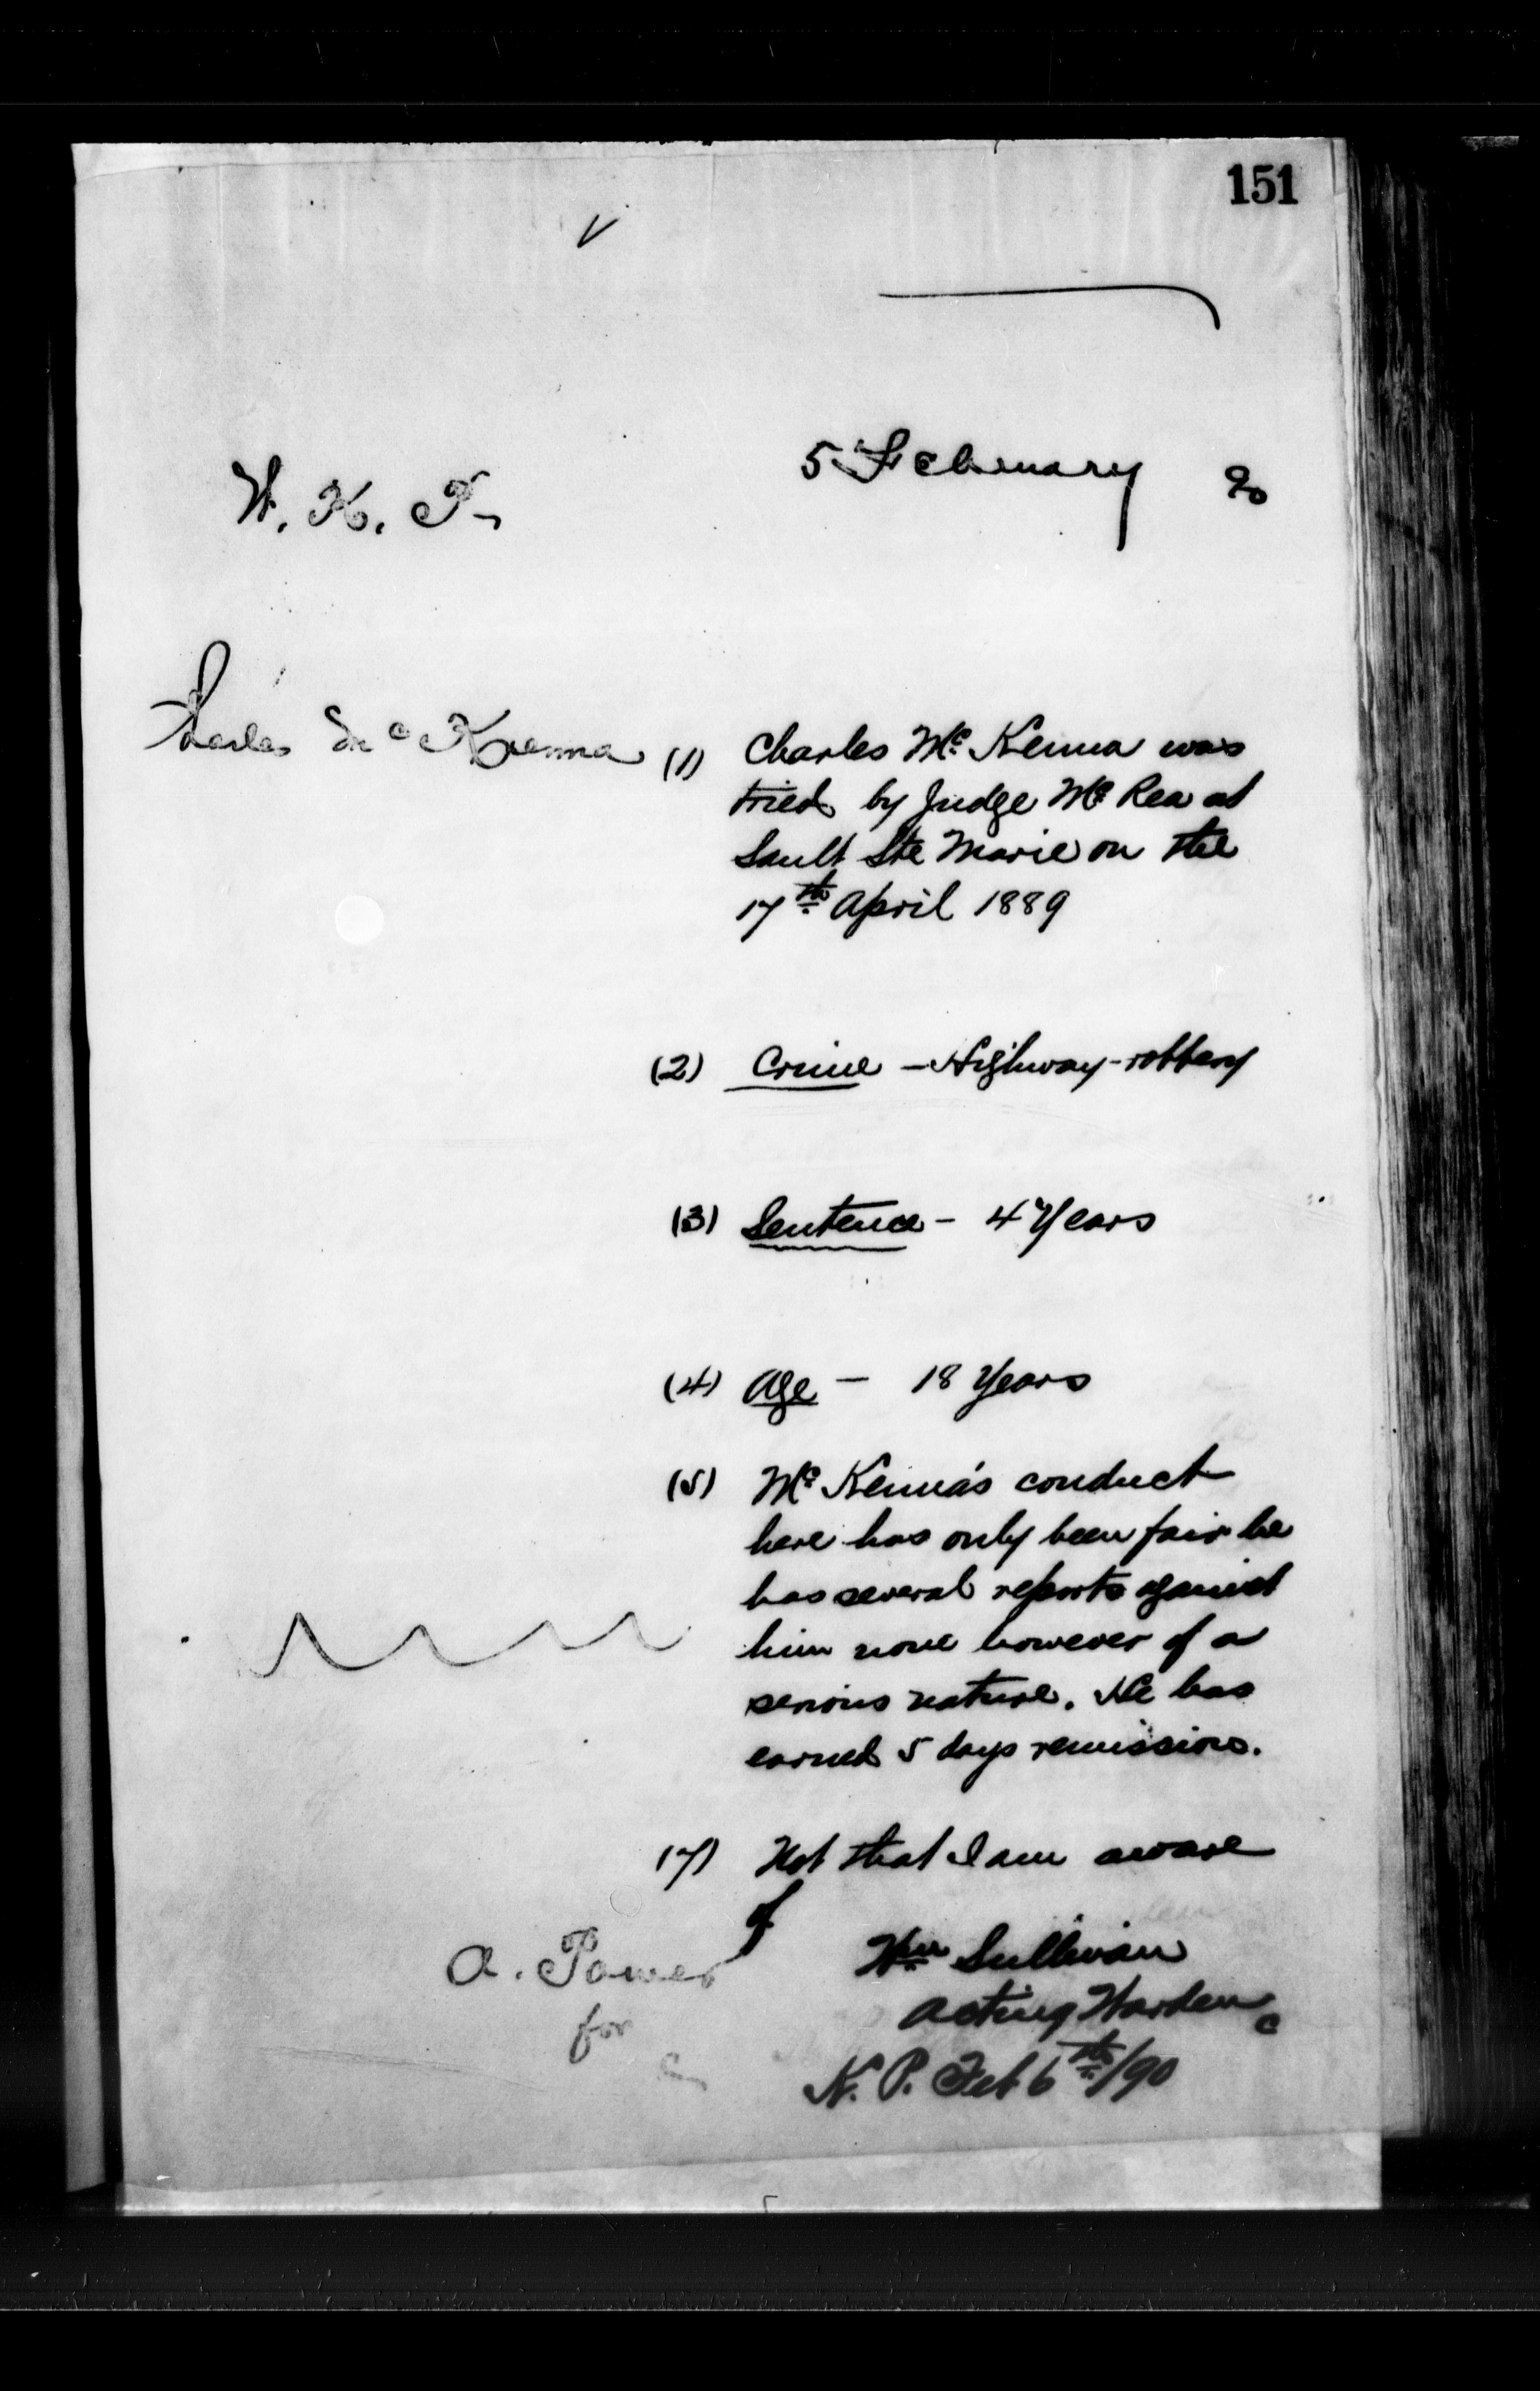 151
5 February 90
W. K. P.
Charles McKenna
(1) Charles Mc Kenna was
tried by Judge Mc Rea at
Sault Ste Marie on the
17th April 1889
(2) Crime - Highway-robbery
(3) Sentence - 4 Years
(4) Age - 18 Years
(5) Mc Kenna's conduct
here has only been fair he
has several reports against
him none however of a
serious nature. He has
earned 5 days remission.
(7) Not that I am aware
of
A. Power
for
Wm Sullivan
Acting Warden
K. P. Feb 6th/90